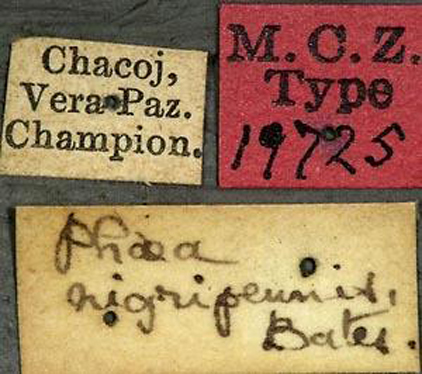 Chacoj,
Vera Paz.
Champion.
M. C. Z.
Type
19725
Phæa
nigripennis,
Bates.